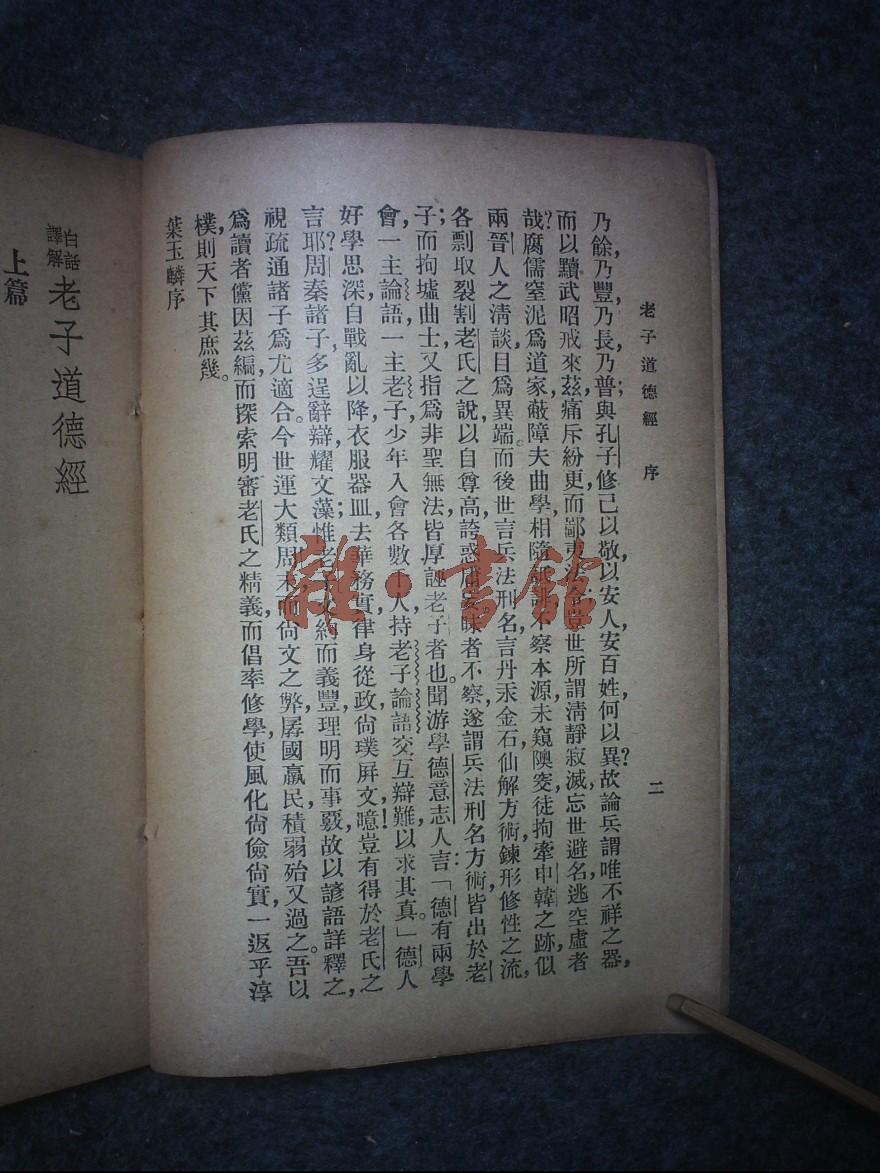 老子道德經 序 二
乃餘,乃豐,乃長,乃普;與孔子修己以敬,以安人,安百姓,何以異?故論兵謂唯不祥之器,
而以黷武昭戒來茲,痛斥紛更,而鄙夷法令,豈世所謂清靜寂滅,忘世避名,逃空虛者
哉?腐儒窒泥爲道家,蔽障夫曲學,相隨訕誹,不察本源,未窺隩窔,徒拘牽申韓之跡,似
兩晉人之淸談,目爲異端。而後世言兵法刑名,言丹汞金石仙解方術,鍊形修性之流,
各剽取裂割老氏之說以自尊高,誇惑庸妄。昧者不察,遂謂兵法刑名方術,皆出於老
子;而拘墟曲士,又指爲非聖無法,皆厚誣老子者也。聞游學德意志人言:「德有兩學
會,一主論語,一主老子,少年入會各數千人,持老子論語交互辯難,以求其真。」德人
好學思深,自戰亂以降,衣服器皿,去華務實;律身從政,尙璞屏文,噫!豈有得於老氏之
言耶?周秦諸子,多逞辭辯,耀文藻;惟老子文約而義豐,理明而事覈,故以諺語詳釋之,
視疏通諸子爲尤適合。今世運大類周末,而尙文之弊,孱國羸民,積弱殆又過之。吾以
爲讀者儻因茲編,而探索明審老氏之精義,而倡率修學,使風化尙儉尙實,一返乎淳
樸,則天下其庶幾。
葉玉麟序
白話譯解 老子道德經
上篇
雜·書館